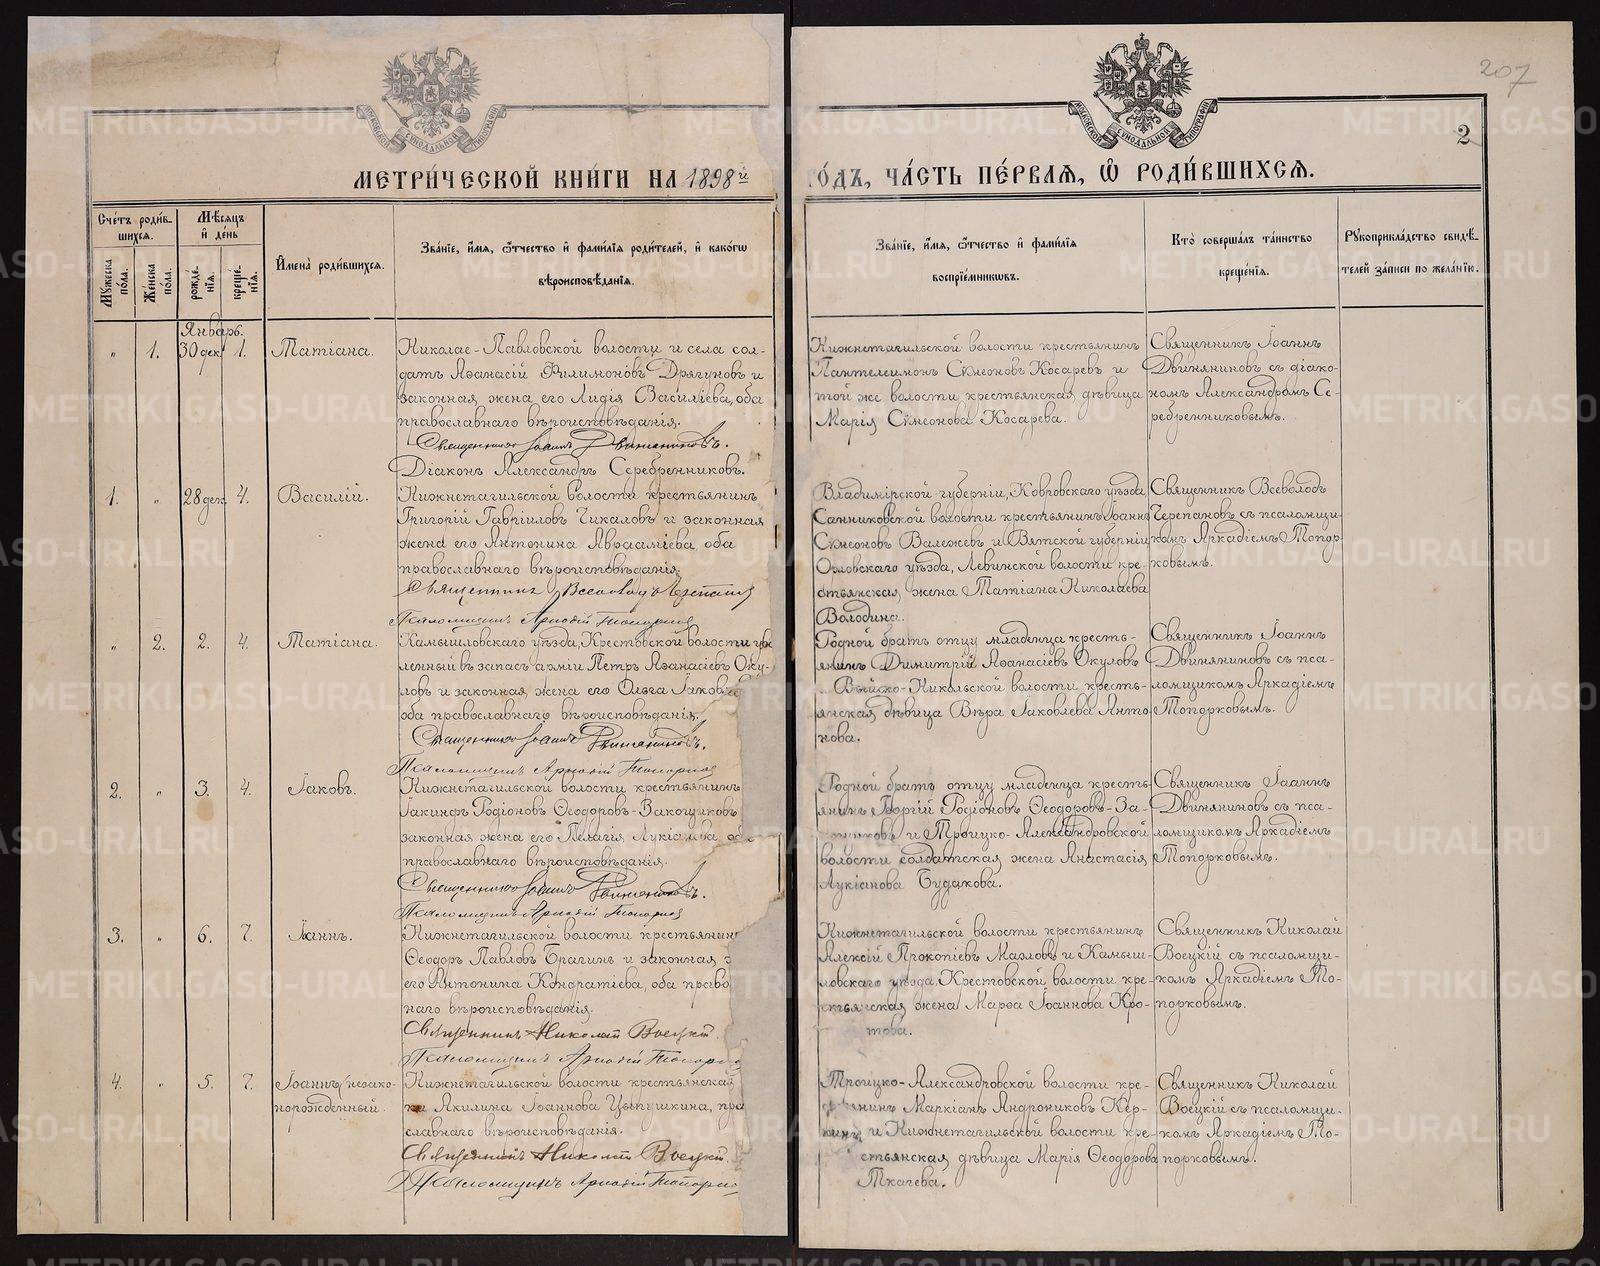 207
МОСКОВСКОЙ СѴНОДАЛЬНОЙ ТИПОГРАФІИ
МОСКОВСКОЙ СѴНОДАЛЬНОЙ ТИПОГРАФІИ
2
МЕТРИ́ЧЕСКОЙ КНИ́ГИ НА 1898й
ГО́ДЪ, ЧА́СТЬ ПЕ́РВАѦ, Ѡ҆ РОДИ́ВШИХСѦ.
Сче́тъ роди́в-
шихсѧ.
Мꙋ́жеска по́ла.
Же́нска по́ла.
Мѣ́сѧцъ
и҆ де́нь
рожде-
нїѧ.
креще-
нїѧ.
И҆мена̀ роди́вшихсѧ.
Зва́нїе, и҆́мѧ, ѻ҆́тчество и҆ фами́лїѧ роди́телей, и҆ како́гѡ
вѣроисповѣ́данїѧ.
Зва́нїе, и҆́мѧ, ѻ҆́тчество и҆ фами́лїѧ
воспрїе́мниковъ.
Кто̀ соверша́лъ та́инство
креще́нїѧ.
Рꙋкоприкла́дство свидѣ́-
телей за́писи по жела́нїю.
Январь.
" 1. 30 дек. 1. Татіана.
Николае-Павловской волости и села сол-
датъ Аѳанасій Филимоновъ Дрягуновъ и
законная жена его Лидія Василіева, оба
православнаго вѣроисповѣданія.
Священникъ Іоаннъ Двиняниновъ.
Діаконъ Александръ Серебренниковъ.
Нижнетагильской волости крестьянинъ
Пантелеимонъ Сѵмеоновъ Косаревъ и
той же волости крестьянская дѣвица
Марія Сѵмеонова Косарева.
Священникъ Іоаннъ
Двиняниновъ съ діако-
номъ Александромъ Се-
ребренниковымъ.
1. " 28 дек. 4. Василій.
Нижнетагильской волости крестьянинъ
Григорій Гавріиловъ Чикаловъ и законная
жена его Антонина Авраамiева, оба
православнаго вѣроисповѣданія.
Священникъ Всеволодъ Черепановъ
Псаломщикъ Аркадій Топорков
Владимірской губерніи, Ковровскаго уѣзда
Санниковской волости крестьянинъ Іоаннъ
Сѵмеоновъ Валежевъ и Вятской губерніи
Орловскаго уѣзда, Левинской волости кре-
стьянская жена Татіана Николаева
Володина.
Священникъ Всеволодъ
Черепановъ съ псаломщи-
комъ Аркадіемъ Топор-
ковымъ.
" 2. 2. 4. Татіана.
Камышловскаго уѣзда, Крестовской волости уво
ленный въ запасъ арміи Петръ Аѳанасіевъ Оку-
ловъ и законная жена его Ольга Іаковле
оба православнаго вѣроисповѣданія.
Священникъ Іоаннъ Двиняниновъ.
Псаломщикъ Аркадій Топорков
Родной братъ отцу младенца кресть-
янинъ Димитрій Аѳанасіевъ Окуловъ
Выйско-Никольской волости кресть-
янская дѣвица Вѣра Іаковлева Анто-
нова.
Священникъ Іоаннъ
Двиняниновъ съ пса-
ломщикомъ Аркадіемъ
Топорковымъ.
2. " 3. 4. Іаковъ.
Нижнетагильской волости крестьянинъ
Іакинфъ Родіоновъ Ѳеодоровъ-Закощиковъ
законная жена его Пелагія Лукіанова об
православнаго вѣроисповѣданія.
Священникъ Іоаннъ Двиняниновъ.
Псаломщикъ Аркадій Топорков
Родной братъ отцу младенца кресть-
янинъ Георгій Родіоновъ Ѳеодоровъ-За-
кощиковъ и Троицко-Александровской
волости солдатская жена Анастасія
Лукіанова Будакова.
Священникъ Іоаннъ
Двиняниновъ съ пса-
ломщикомъ Аркадіемъ
Топорковымъ.
3. " 6. 7. Іоаннъ.
Нижнетагильской волости крестьянин
Ѳеодоръ Павловъ Брагинъ и законная
его Антонина Кондратіева, оба право
наго вѣроисповѣданія.
Священникъ Николай Воецкій
Псаломщикъ Аркадій Топорков
Нижнетагильской волости крестьянинъ
Алексій Прокопіевъ Масловъ и Камыш-
ловскаго уѣзда, Крестовской волости кре-
стьянская жена Марѳа Іоаннова Кро-
това.
Священникъ Николай
Воецкій съ псаломщи-
комъ Аркадіемъ То-
порковымъ.
4. " 5. 7. Іоаннъ (незако-
норожденный.
Нижнетагильской волости крестьянская
ка Акилина Іоаннова Цыпушкина, пра
славнаго вѣроисповѣданія.
Священникъ Николай Воецкій.
Псаломщикъ Аркадій Топорко
Троицко-Александровской волости кре-
стьянинъ Маркіанъ Андрониковъ Кер-
и Нижнетагильской волости кре-
стьянская дѣвица Марія Ѳеодорова
Ткачева.
Священникъ Николай
Воецкій съ псаломщи-
комъ Аркадіемъ То-
порковымъ.
METRIKI.GASO-URAL.RU